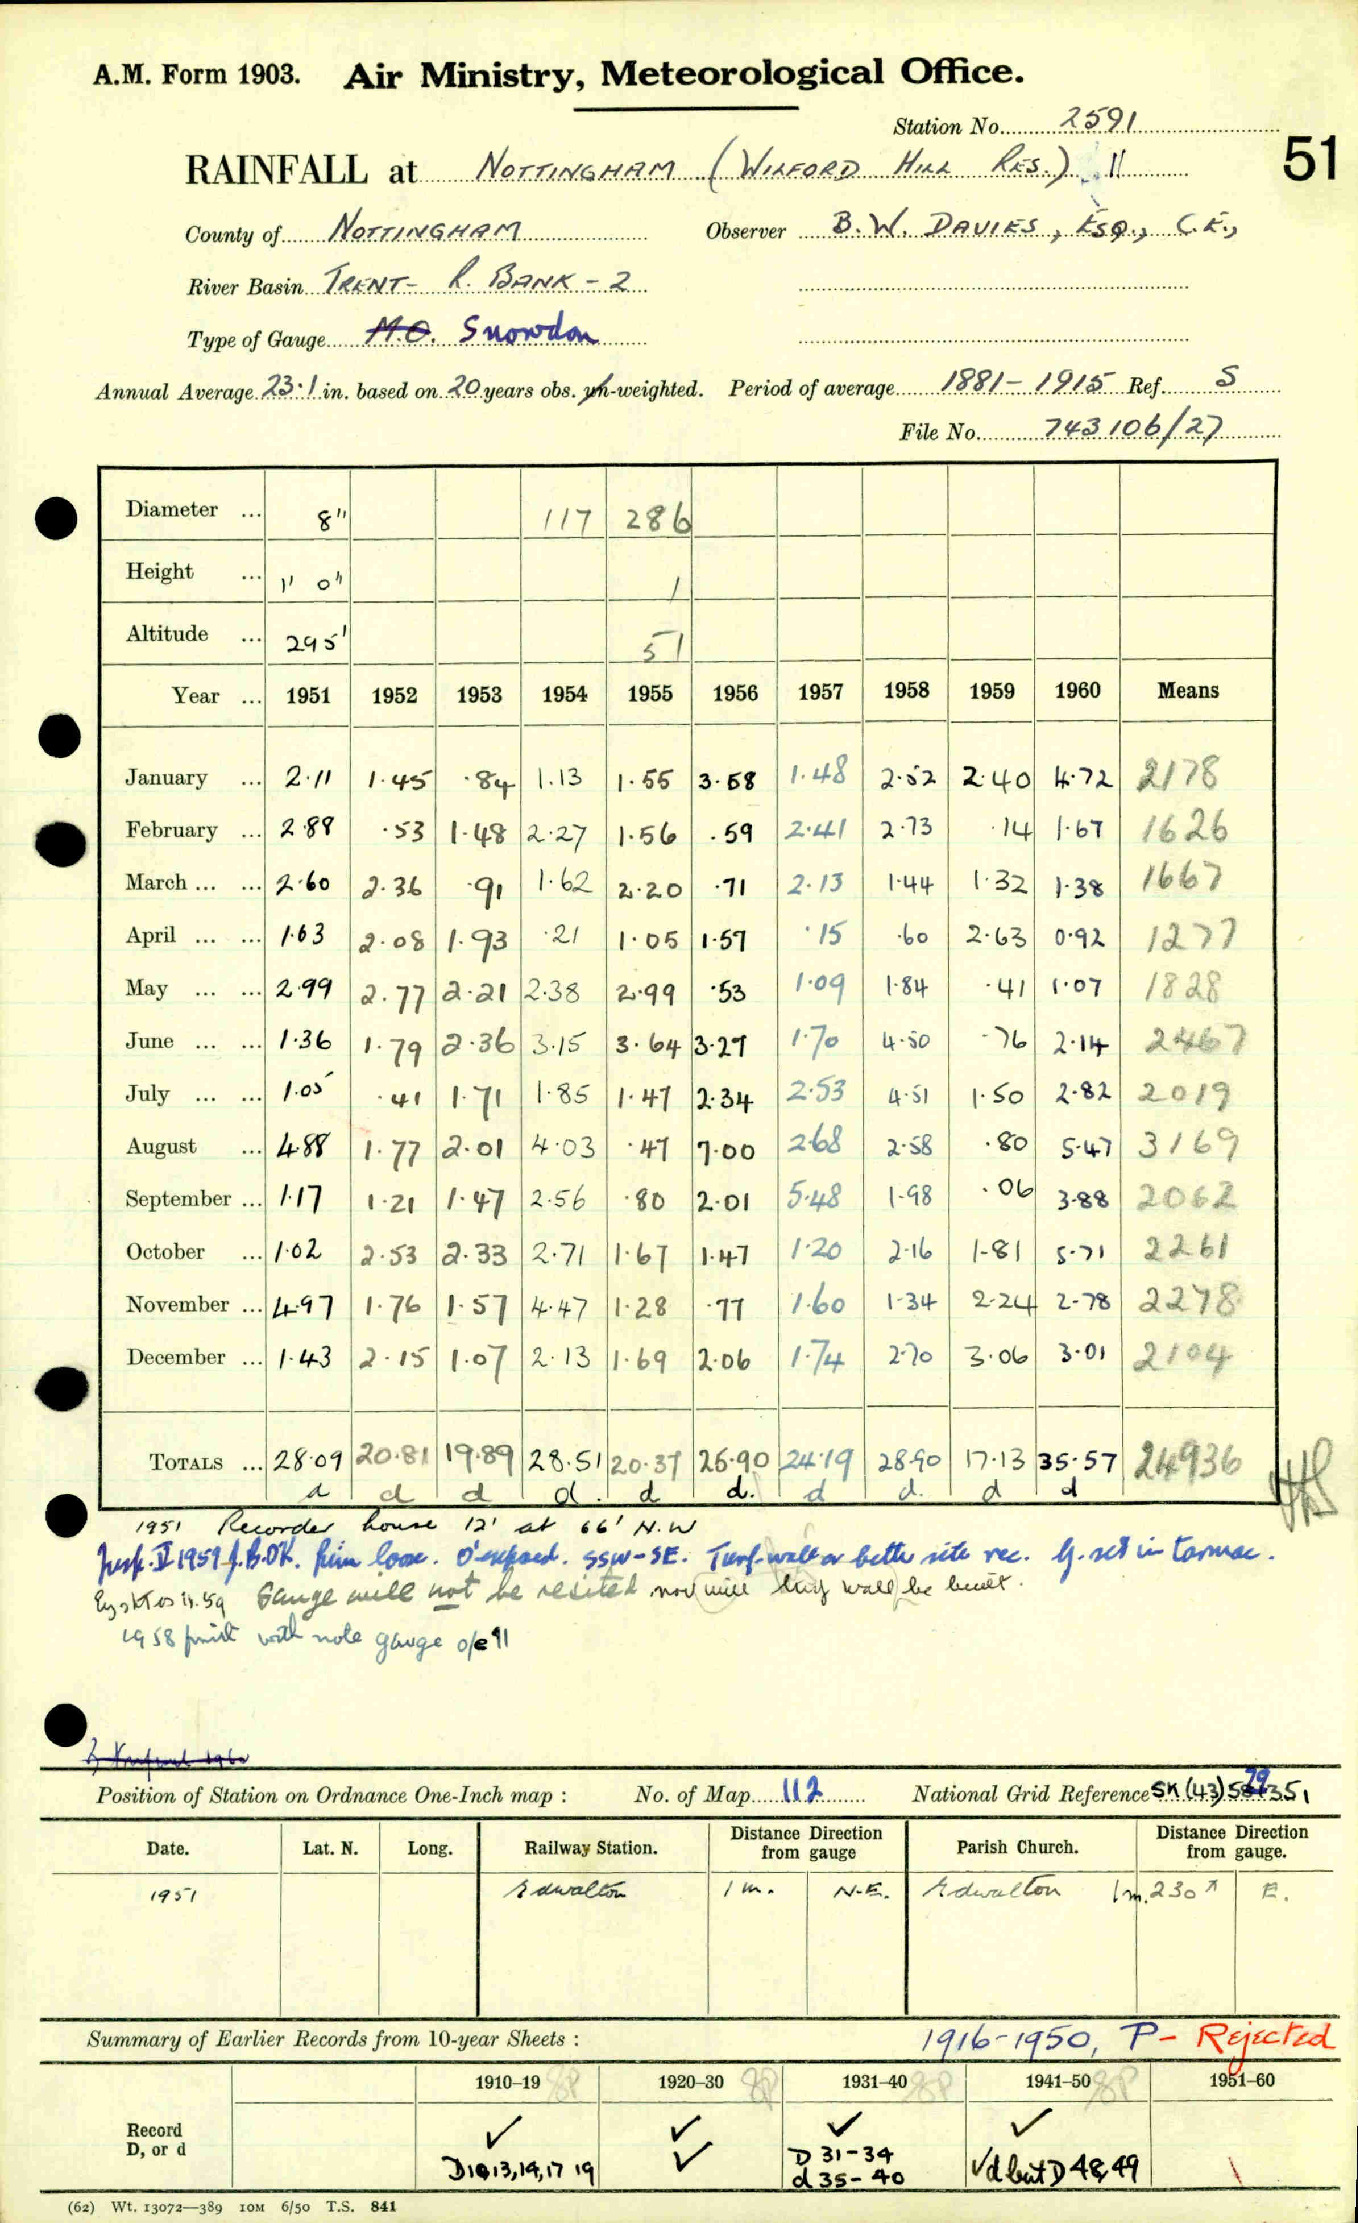 A.M. Form 1903. Air Ministry, Meteorological Office.
Station No. 2591
RAINFALL at NOTTINGHAM (WILFORD HILL RES.) 11
51
County of NOTTINGHAM Observer B.W. DAVIES, ESQ., C.E.,
River Basin TRENT- R. BANK - 2
Type of Gauge M.O. Snowdon
Annual Average 23.1 in. based on 20 years obs. un-weighted. Period of average 1881-1915 Ref. S
File No. 743106/27
Diameter ... 8" 117 286
Height ... 1' 0" 1
Altitude ... 295' 51
Year ... 1951 1952 1953 1954 1955 1956 1957 1958 1959 1960 Means
January ... 2.11 1.45 .84 1.13 1.55 3.58 1.48 2.52 2.40 4.72 2178
February ... 2.88 .53 1.48 2.27 1.56 .59 2.41 2.73 .14 1.67 1626
March ... ... 2.60 2.36 .91 1.62 2.20 .71 2.13 1.44 1.32 1.38 1667
April ... ... 1.63 2.08 1.93 .21 1.05 1.57 .15 .60 2.63 0.92 1277
May ... ... 2.99 2.77 2.21 2.38 2.99 .53 1.09 1.84 .41 1.07 1828
June ... ... 1.36 1.79 2.36 3.15 3.64 3.27 1.70 4.50 .76 2.14 2467
July ... ... 1.05 .41 1.71 1.85 1.47 2.34 2.53 4.51 1.50 2.82 2019
August ... 4.88 1.77 2.01 4.03 .47 7.00 2.68 2.58 .80 5.47 3169
September ... 1.17 1.21 1.47 2.56 .80 2.01 5.48 1.98 .06 3.88 2062
October ... 1.02 2.53 2.33 2.71 1.67 1.47 1.20 2.16 1.81 5.71 2261
November ... 4.97 1.76 1.57 4.47 1.28 .77 1.60 1.34 2.24 2.78 2278
December ... 1.43 2.15 1.07 2.13 1.69 2.06 1.74 2.70 3.06 3.01 2104
TOTALS ... 28.09 20.81 19.89 28.51 20.37 26.90 24.19 28.90 17.13 35.57 24936
d d d d. d d. d d. d d
1951 Recorder house 12' at 66' N.W
Insp. II 1959 J.B. OK. Rim loose. O'exposed. SSW-SE. Turf-wall or better site rec. G. set in tarmac.
Gauge will not be resited nor will turf wall be built.
1958 with note gauge o/e 11
Position of Station on Ordnance One-Inch map : No. of Map 112 National Grid Reference SK(43) 351
Date. Lat. N. Long. Railway Station. Distance from Direction gauge Parish Church. Distance from Direction gauge.
1951 Edwalton 1 m. N.E. Edwalton 1m. 230 E.
Summary of Earlier Records from 10-year Sheets : 1916-1950, P- Rejected
1910–19 1920–30 1931–40 1941–50 1951–60
Record ✓ ✓ ✓ ✓
D, or d D 13,14,17 19 ✓ D 31-34 d 35-40 ✓d but D 48,49
(62) Wt. 13072—389 10M 6/50 T.S. 841